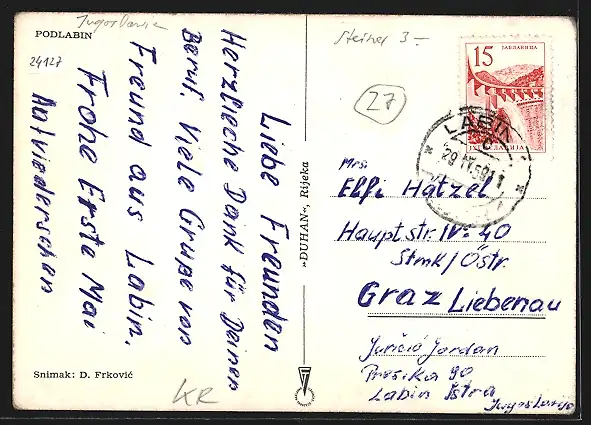 Jugoslavia
PODLABIN
24127
Liebe Freunden
Herzlleche Dank für Deinen
Beruf. Viele Grupe von
Freund aus Labin.
Frohe Erste Mai
Aufviederschen
Snimak: D. Frković
KR
»DUHAN«, Rijeka
Steiner 3-
27
15
ЈАБЛАНИЦА
ЈУГОСЛАВИЈА
LABIN
29 IV 59
Mrs.
Elfi Hatzel
Hauptstr. IV: 40
Stmk/Östr.
Graz Liebenau
Juričić Jordan
Presika 90
Labin Istra
Jugoslavija